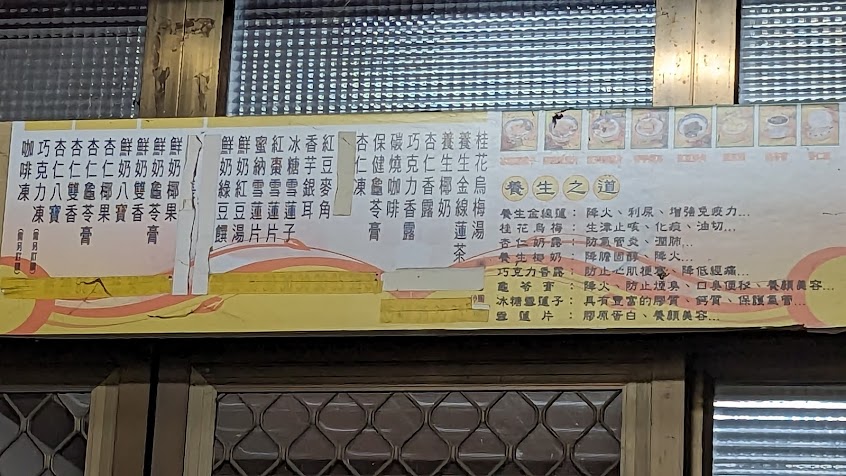 桂花烏梅湯
養生金線蓮茶
養生椰奶
杏仁香露
巧克力香露
碳燒咖啡
保健龜苓膏
杏仁凍
紅豆麥角
香芋銀耳
冰糖雪蓮子
紅棗雪蓮片
蜜納雪蓮片
鮮奶紅豆湯
鮮奶綠豆饌
鮮奶椰果
鮮奶龜苓膏
鮮奶雙香
鮮奶八寶
杏仁椰果
杏仁龜苓膏
杏仁雙香
杏仁八寶
巧克力凍
咖啡凍
養生之道
養生金線蓮：降火、利尿、增強免疫力...
桂花烏梅：生津止咳、化痰、油切...
杏仁奶露：防氣管炎、潤肺...
養生椰奶：降膽固醇、降火...
巧克力香露：防止心肌梗塞、降低經痛...
龜苓膏：降火、防止煙臭、口臭便秘、養顏美容...
冰糖雪蓮子：具有豐富的膠質、鈣質、保護氣管...
雪蓮片：膠原蛋白、養顏美容...